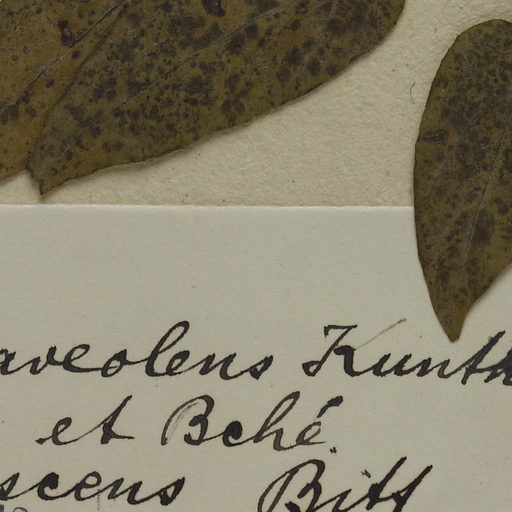 aveolens Kunth
et Bché.
scens Bitt